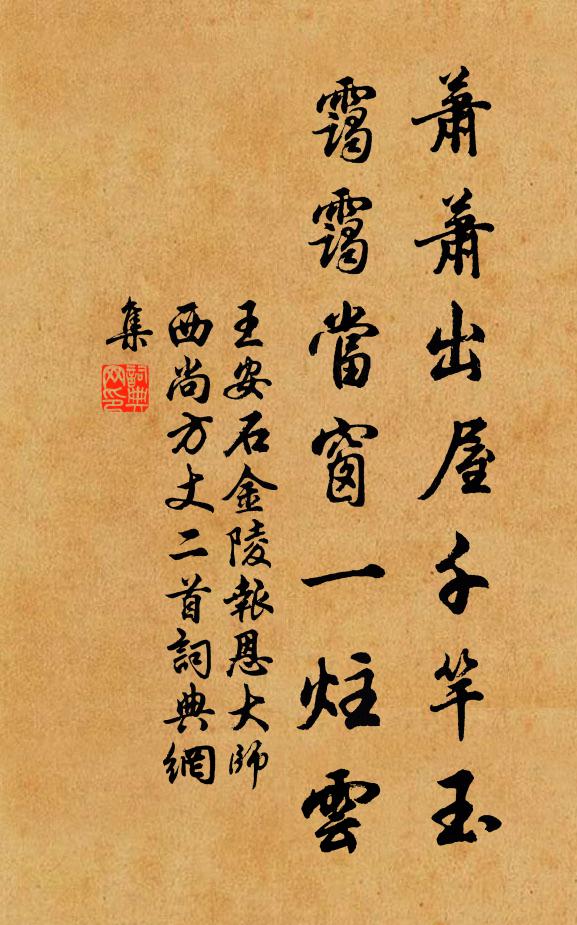 蕭蕭出屋千竿玉
靄靄當窗一炷雲
王安石金陵報恩大師
西尚方丈二首詞典網
集
詞典
网印